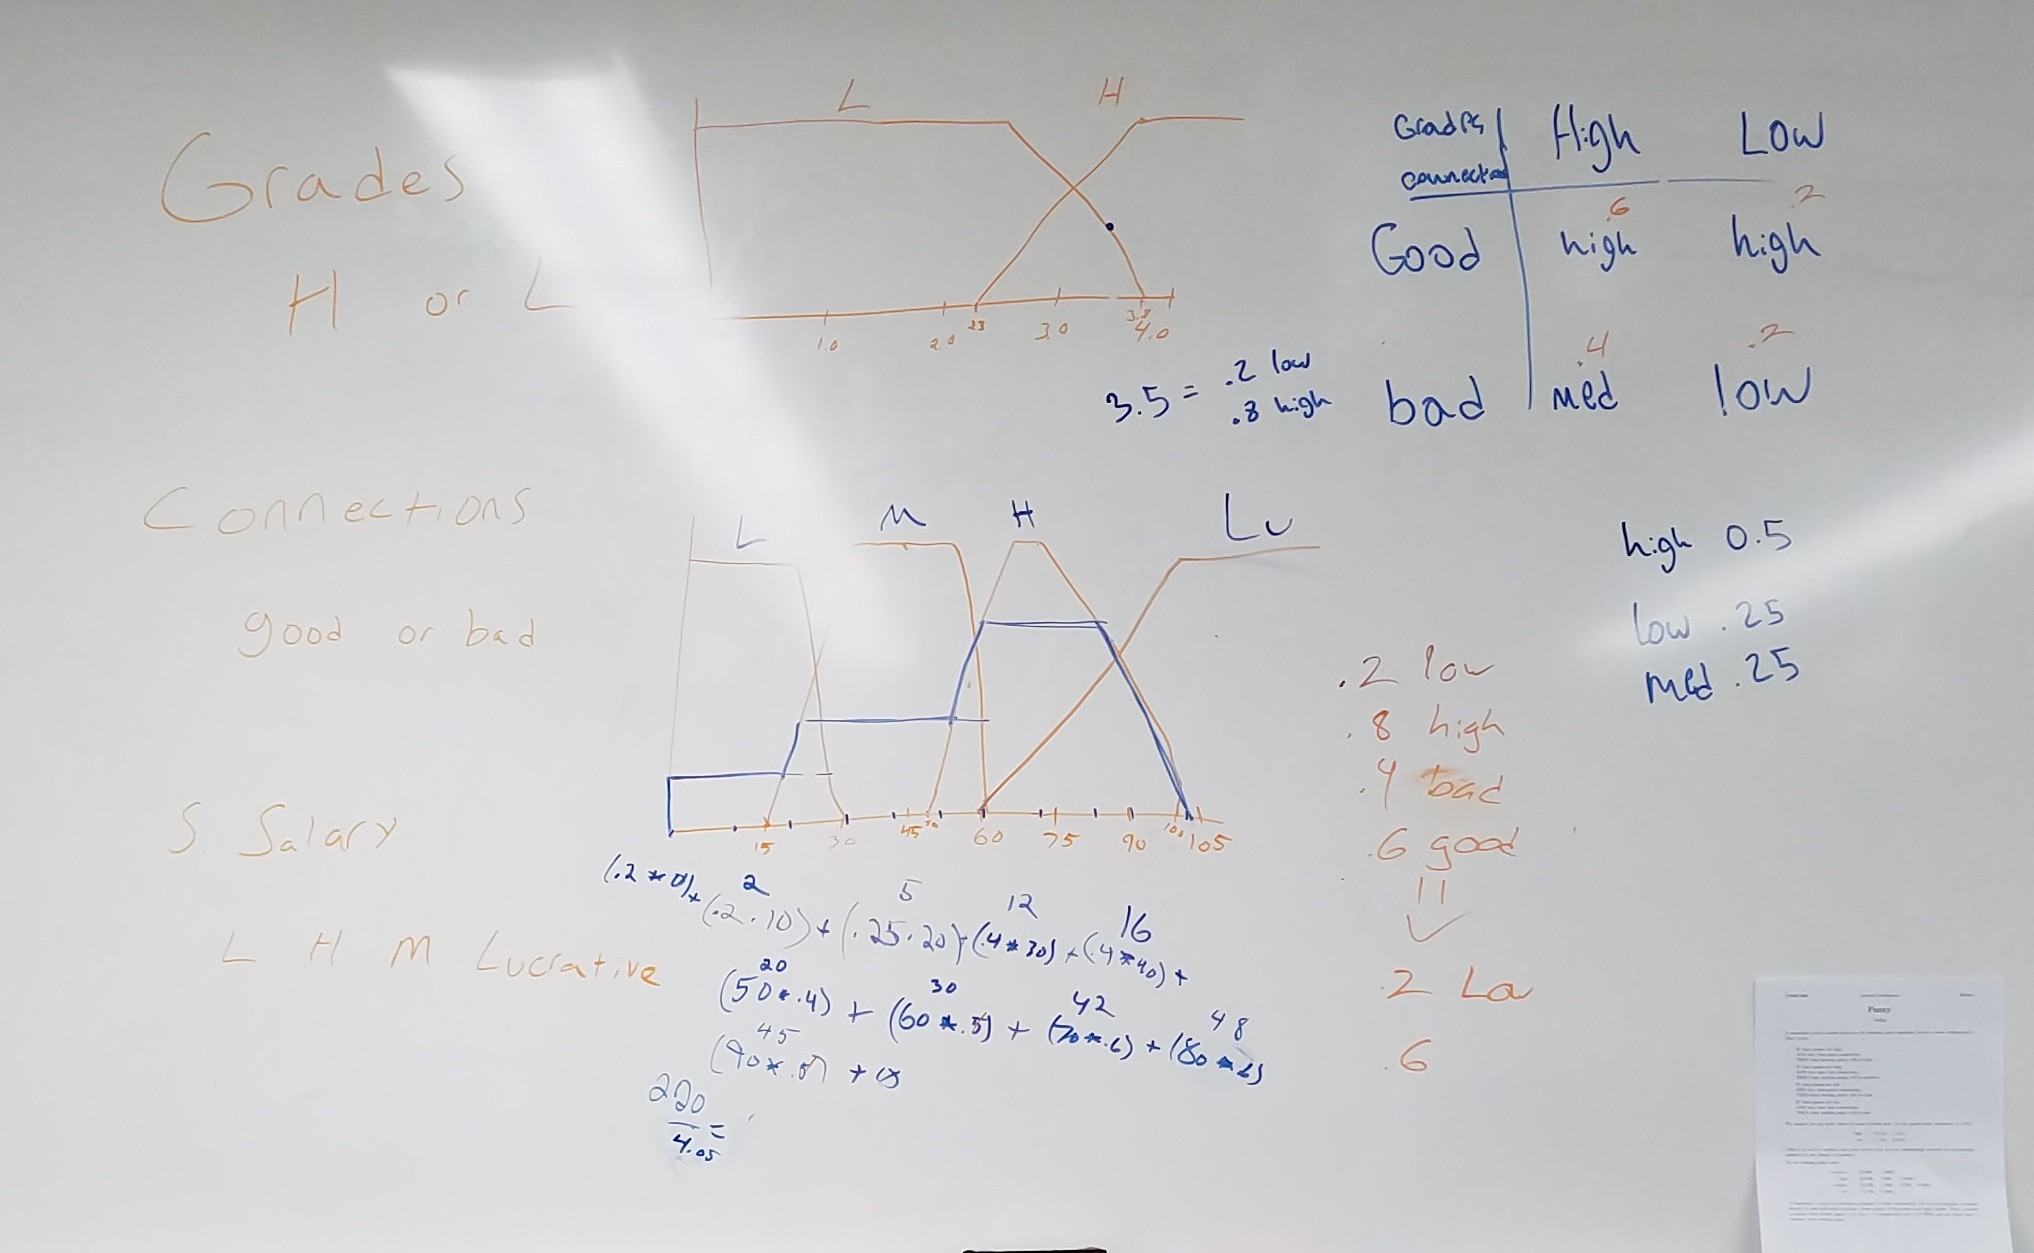 Grades
H or L
L H
1.0 2.0 2.3 3.0 3.8 4.0
3.5 = .2 low
.8 high
Grades High Low
connection
.6 .2
Good high high
.4 .2
bad med low
Connections
good or bad
L M H Lu
15 30 45 50 60 75 90 100 105
S Salary
L H M Lucrative
high 0.5
low .25
med .25
.2 low
.8 high
.4 bad
.6 good
.2 Lo
.6
2 5 12 16
(.2 * 0) + (.2 · 10) + (.25 · 20) + (.4 * 30) + (.4 * 40) +
20 30 42 48
(50 * .4) + (60 * .5) + (70 * .6) + (80 * .6)
45
(90 * .5) + 0
220
4.05 =
Fuzzy